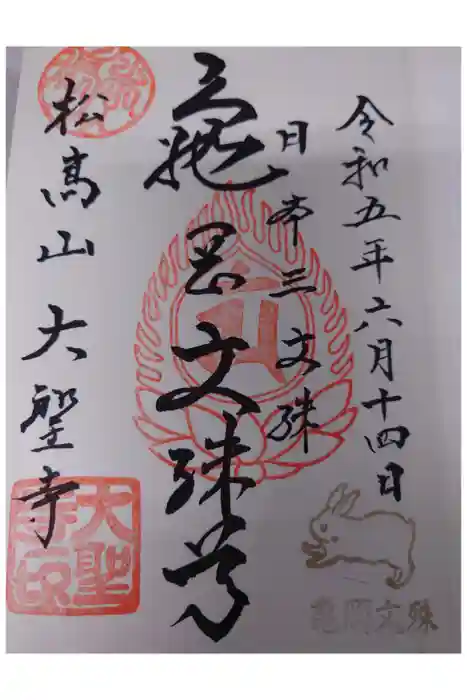 令和五年六月十四日
日本三文殊
亀岡文殊尊
松高山 大聖寺
大聖
寺印
亀岡文殊